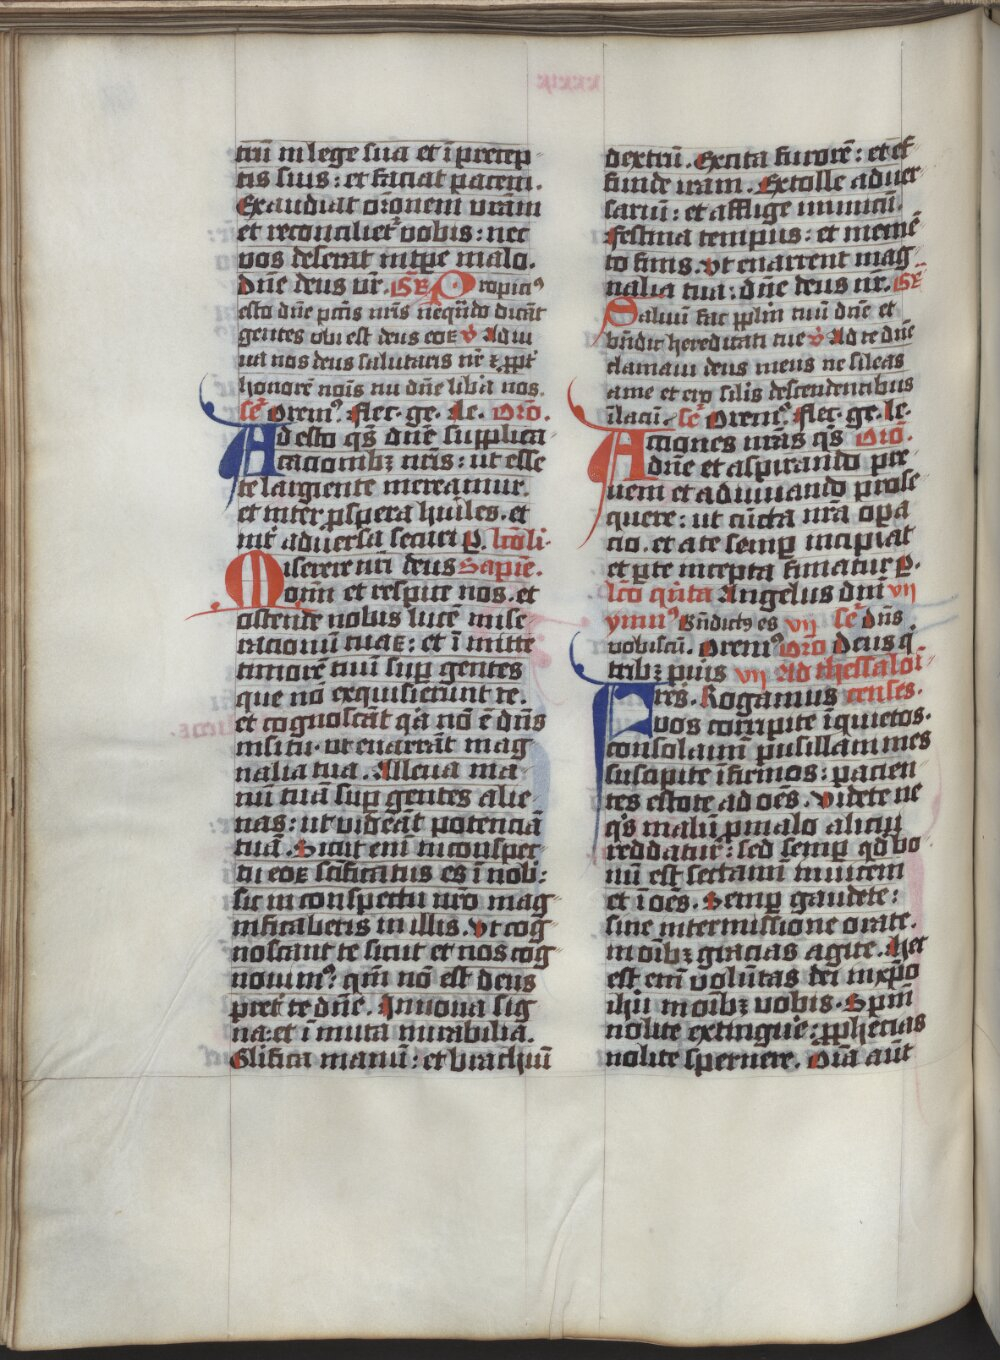 trū in lege sua et ī precep
tis suis: et faciat pacem.
Exaudiat or̄onem vrām
et reconciliet᷑ vobis: nec
vos deserat in tꝑe malo.
dn̄e deus vr̄. Gr̄ Propiciꝰ
esto dn̄e pctīs nrīs neqn̄do dicāt
gentes vbi est deus eoꝝ v̄ Adiu
ua nos deus salutaris nr̄ ⁊ ꝓpt᷑
honorē noīs tui dn̄e libīa nos.
se᷑ Oremꝰ. Flec. ge. Le. Oro.
Adesto qs̄ dn̄e supplica
cacionibꝫ nrīs: ut esse
te largiente mereamur.
et inter ꝓspera hūiles. et
int᷑ adūersa securi ꝑ. lcōli.
Miserere nrī deus Sapiē.
om̄ et respice nos. et
ostende nobis lucē mise
racionū tuaꝝ: et ī mitte
timorē tuū suꝑ gentes
que nō exquisierunt te.
et cognoscāt qīa nō ē dn̄s
nisi tu. vt enarrāt mag
nalia tua. Alleua ma
nū tuā suꝑ gentes alie
nas: ut videāt potenciā
tuā. Sicut enī in conspec
tu eoꝝ scīficatus es ī nobī:
sic in conspectu nrō mag
nificaberis in illis. Vt cog
noscant te sicut et nos cog
nouimꝰ: qm̄ nō est deus
pret᷑ te dn̄e. Innoua sig
na: et ī muta mirabilia.
Glīfica manū: et brachiū
dextrū. Excita furorē: et ef
funde iram. Extolle aduer
sariū: et afflige inimicū.
Festina tempus: et memē
to finis. Vt enarrent mag
nalia tua: dn̄e deus nr̄. Gr̄
Saluū fac pplm̄ tuū dn̄e et
bn̄dic hereditati tue v̄ Ad te dn̄e
clamaui deus meus ne sileas
a me et ero silīs descendentibus
ī lacū. se᷑ Oremꝰ. Flec. ge. le.
Actiones nrās qs̄ Oro.
dn̄e et aspirando pre
ueni et adiuuando prose
quere: ut cūcta nrā oꝑa
cio. et a te semꝑ incipiat
et ꝑ te incepta finiatur ꝑ.
lcō qn̄ta Angelus dn̄i vij
ymnꝰ Bn̄dictꝰ es vij se᷑ dn̄s
vobiscū. Oremꝰ Oro Deus q̄
tribꝫ puīs vij Ad thessaloī
Fres. Rogamus censes.
vos corripite īquietos.
consolamī pusillanimes
suscipite īfirmos: pacien
tes estote ad oēs. Videte ne
qs̄ malū ꝑ malo alicui
reddatur: sed semꝑ qd̄ bo
nū est sectamī inuicem
et ī oēs. Semꝑ gaudete:
sine intermissione orate.
in oībꝫ gracias agite. Hec
est enī volūtas dei in xp̄o
ihū in oībꝫ vobis. Spm̄
nolite extinguē: ꝓphecias
nolite spernere. Oīa aūt